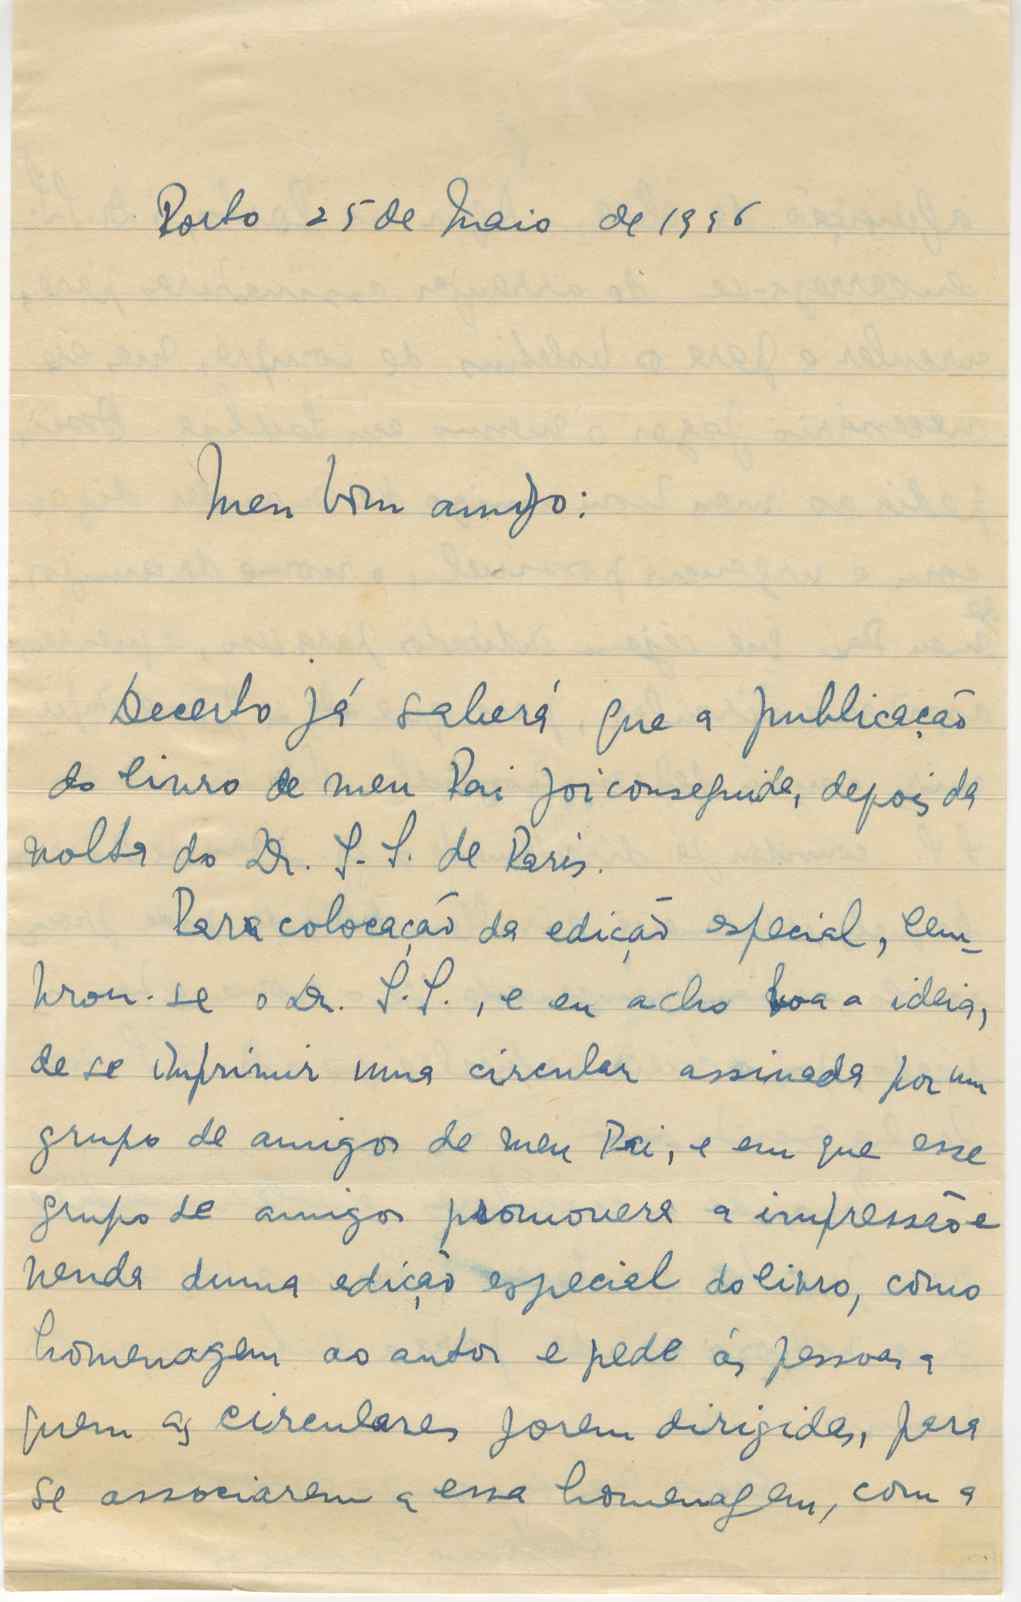 Porto 25 de Maio de 1946
Meu bom amigo:
Decerto já saberá que a publicação
do livro de meu Pai foi conseguida, depois da
volta do Dr. S. S. de Paris.
Para colocação da edição especial, lem-
brou-se o Dr. S. S., e eu acho boa a ideia,
de se imprimir uma circular assinada por um
grupo de amigos de meu Pai, e em que esse
grupo de amigos promovera a impressão e
venda duma edição especial do livro, como
homenagem ao autor e pede ás pessoas a
quem as circulares forem dirigidas, para
se associarem a essa homenagem, com a